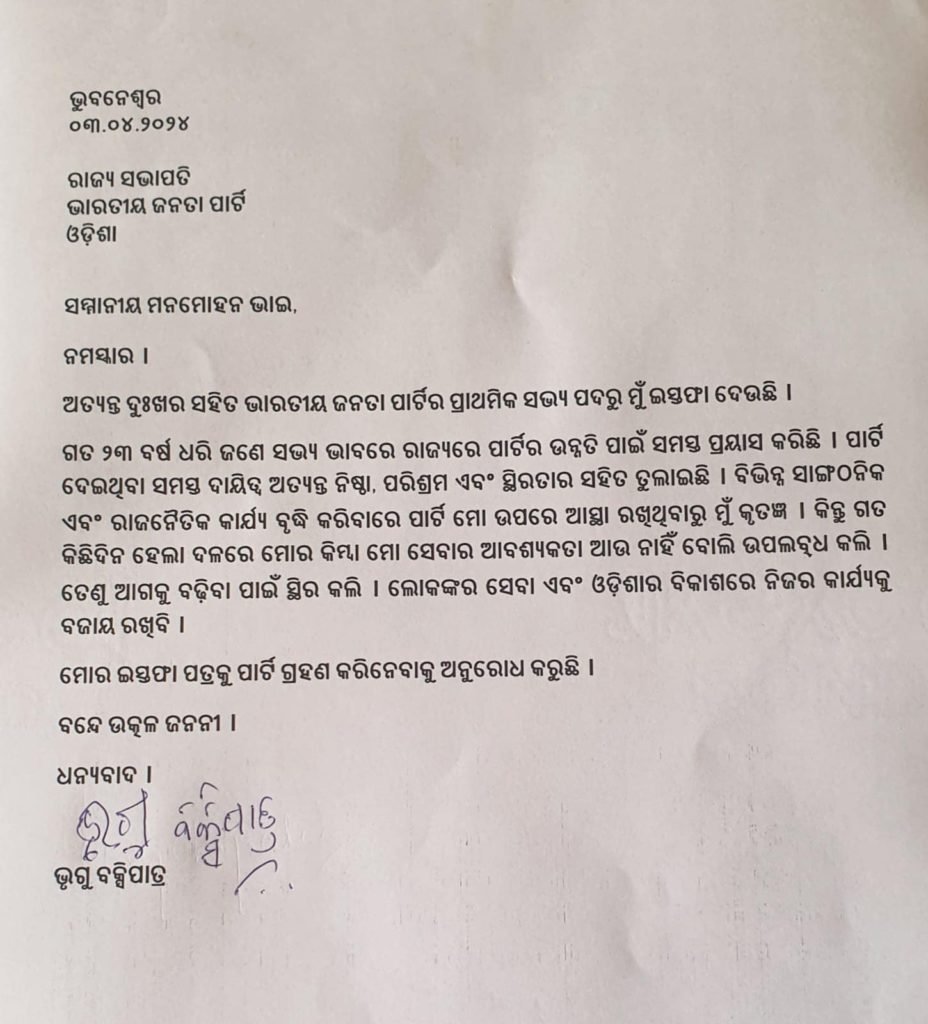 ଭୁବନେଶ୍ୱର
୦୩.୦୪.୨୦୨୪
ରାଜ୍ୟ ସଭାପତି
ଭାରତୀୟ ଜନତା ପାର୍ଟି
ଓଡ଼ିଶା
ସମ୍ମାନୀୟ ମନମୋହନ ଭାଇ,
ନମସ୍କାର ।
ଅତ୍ୟନ୍ତ ଦୁଃଖର ସହିତ ଭାରତୀୟ ଜନତା ପାର୍ଟିର ପ୍ରାଥମିକ ସଭ୍ୟ ପଦରୁ ମୁଁ ଇସ୍ତଫା ଦେଉଛି ।
ଗତ ୨୩ ବର୍ଷ ଧରି ଜଣେ ସଭ୍ୟ ଭାବରେ ରାଜ୍ୟରେ ପାର୍ଟିର ଉନ୍ନତି ପାଇଁ ସମସ୍ତ ପ୍ରୟାସ କରିଛି । ପାର୍ଟି
ଦେଇଥିବା ସମସ୍ତ ଦାୟିତ୍ୱ ଅତ୍ୟନ୍ତ ନିଷ୍ଠା, ପରିଶ୍ରମ ଏବଂ ସ୍ଥିରତାର ସହିତ ତୁଲାଇଛି । ବିଭିନ୍ନ ସାଙ୍ଗଠନିକ
ଏବଂ ରାଜନୈତିକ କାର୍ଯ୍ୟ ବୃଦ୍ଧି କରିବାରେ ପାର୍ଟି ମୋ ଉପରେ ଆସ୍ଥା ରଖିଥିବାରୁ ମୁଁ କୃତଜ୍ଞ । କିନ୍ତୁ ଗତ
କିଛିଦିନ ହେଲା ଦଳରେ ମୋର କିମ୍ବା ମୋ ସେବାର ଆବଶ୍ୟକତା ଆଉ ନାହିଁ ବୋଲି ଉପଲବ୍ଧ କଲି ।
ତେଣୁ ଆଗକୁ ବଢ଼ିବା ପାଇଁ ସ୍ଥିର କଲି । ଲୋକଙ୍କର ସେବା ଏବଂ ଓଡ଼ିଶାର ବିକାଶରେ ନିଜର କାର୍ଯ୍ୟକୁ
ବଜାୟ ରଖିବି ।
ମୋର ଇସ୍ତଫା ପତ୍ରକୁ ପାର୍ଟି ଗ୍ରହଣ କରିନେବାକୁ ଅନୁରୋଧ କରୁଛି ।
ବନ୍ଦେ ଉତ୍କଳ ଜନନୀ ।
ଧନ୍ୟବାଦ ।
ଭୃଗୁ ବକ୍ସିପାତ୍ର
ଭୃଗୁ ବକ୍ସିପାତ୍ର